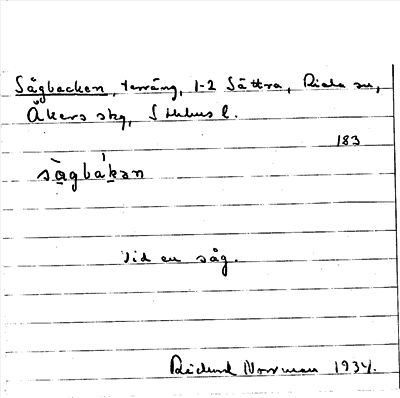 Sågbacken, terräng, 1-2 Sättra, Riala sn,
Åkers skg, Sthlms l.
183
sàgbákan
Vid en såg.
Rickard Norrman 1934.